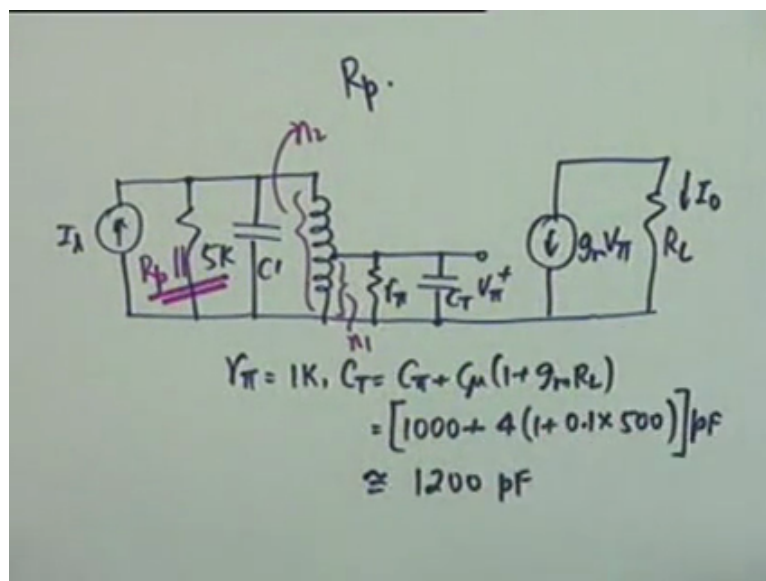 Rp.
n2
Is
Rp || 5K
C1
rπ
CT
Vπ
+
gmVπ
RL
↓ Io
n1
rπ = 1K, CT = Cπ + Cμ(1 + gmRL)
= [1000 + 4(1 + 0.1 × 500)] pF
≅ 1200 pF